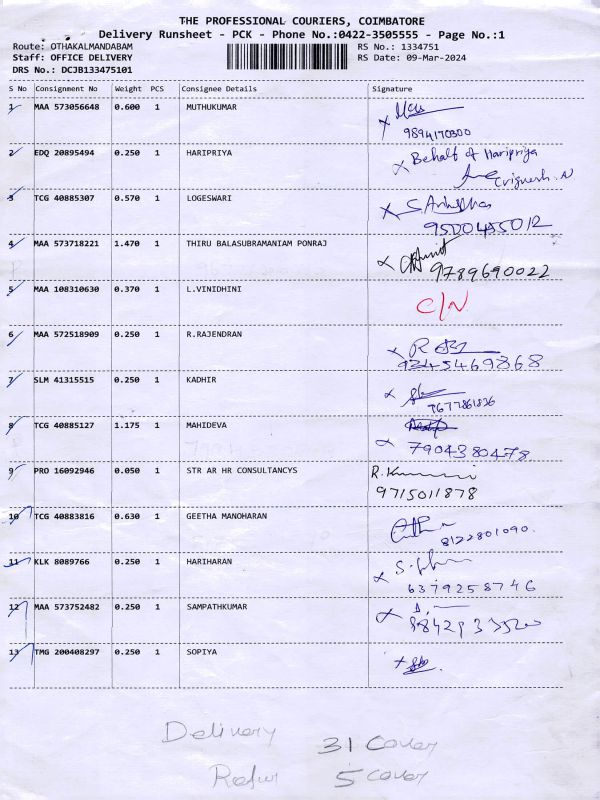 THE PROFESSIONAL COURIERS, COIMBATORE
Delivery Runsheet - PCK - Phone No.:0422-3505555 - Page No.:1
Route: OTHAKALMANDABAM
RS No.: 1334751
Staff: OFFICE DELIVERY
RS Date: 09-Mar-2024
DRS No.: DCJB133475101
S No Consignment No Weight PCS Consignee Details Signature
1 MAA 573056648 0.600 1 MUTHUKUMAR
9894170300
2 EDQ 20895494 0.250 1 HARIPRIYA Behalf of Haripriya
3 TCG 40885307 0.570 1 LOGESWARI
9500455012
4 MAA 573718221 1.470 1 THIRU BALASUBRAMANIAM PONRAJ
9789690022
5 MAA 108310630 0.370 1 L.VINIDHINI C/N
6 MAA 572518909 0.250 1 R.RAJENDRAN
9245469868
7 SLM 41315515 0.250 1 KADHIR
8 TCG 40885127 1.175 1 MAHIDEVA
7904380478
9 PRO 16092946 0.050 1 STR AR HR CONSULTANCYS
9715011878
10 TCG 40883816 0.630 1 GEETHA MANOHARAN
8122801090.
11 KLK 8089766 0.250 1 HARIHARAN
6379258746
12 MAA 573752482 0.250 1 SAMPATHKUMAR
13 TMG 200408297 0.250 1 SOPIYA
Delivery 31 Cover
5 cover